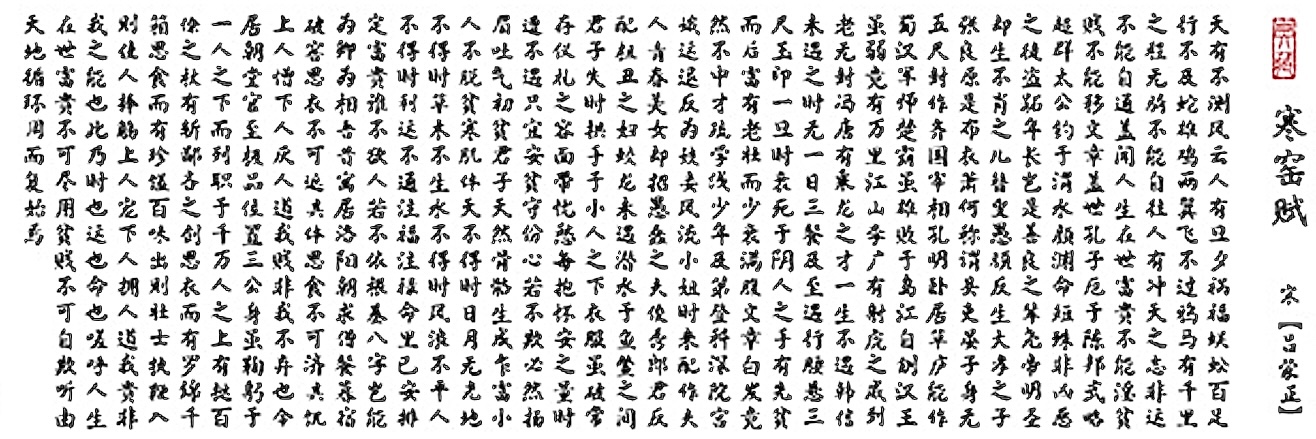 寒窑赋 宋【吕蒙正】
天有不测风云人有旦夕祸福蜈蚣百足
行不及蛇雄鸡两翼飞不过鸦马有千里
之程无骑不能自往人有冲天之志非运
不能自通盖闻人生在世富贵不能淫贫
贱不能移文章盖世孔子厄于陈邦武略
超群太公钓于渭水颜渊命短殊非凶恶
之徒盗跖年长岂是善良之辈尧帝明圣
却生不肖之儿瞽叟愚顽反生大孝之子
张良原是布衣萧何称谓县吏晏子身无
五尺封作齐国宰相孔明卧居草庐能作
蜀汉军师楚霸虽雄败于乌江自刎汉王
虽弱竟有万里江山李广有射虎之威到
老无封冯唐有乘龙之才一生不遇韩信
未遇之时无一日三餐及至遇行腰悬三
尺玉印一旦时衰死于阴人之手有先贫
而后富有老壮而少衰满腹文章白发竟
然不中才疏学浅少年及第登科深院宫
娥运退反为妓妾风流小妞时来配作夫
人青春美女却招愚蠢之夫俊秀郎君反
配粗丑之妇蛟龙未遇潜水于鱼鳖之间
君子失时拱手于小人之下衣服虽破常
存仪礼之容面带忧愁每抱怀安之量时
遭不遇只宜安贫守份心若不欺必然扬
眉吐气初贫君子天然骨骼生成乍富小
人不脱贫寒肌体天不得时日月无光地
不得时草木不生水不得时风浪不平人
不得时利运不通注福注禄命里已安排
定富贵谁不欲人若不依根基八字岂能
为卿为相吾昔寓居洛阳朝求僧餐暮宿
破窖思衣不可遮其体思食不可济其饥
上人憎下人厌人道我贱非我不弃也今
居朝堂官至极品位置三公身虽鞠躬于
一人之下而列职于千万人之上有挞百
僚之杖有斩鄙吝之剑思衣而有罗锦千
箱思食而有珍馐百味出则壮士执鞭入
则佳人捧觞上人宠下人拥人道我贵非
我之能也此乃时也运也命也嗟呼人生
在世富贵不可尽用贫贱不可自欺听由
天地循环周而复始焉